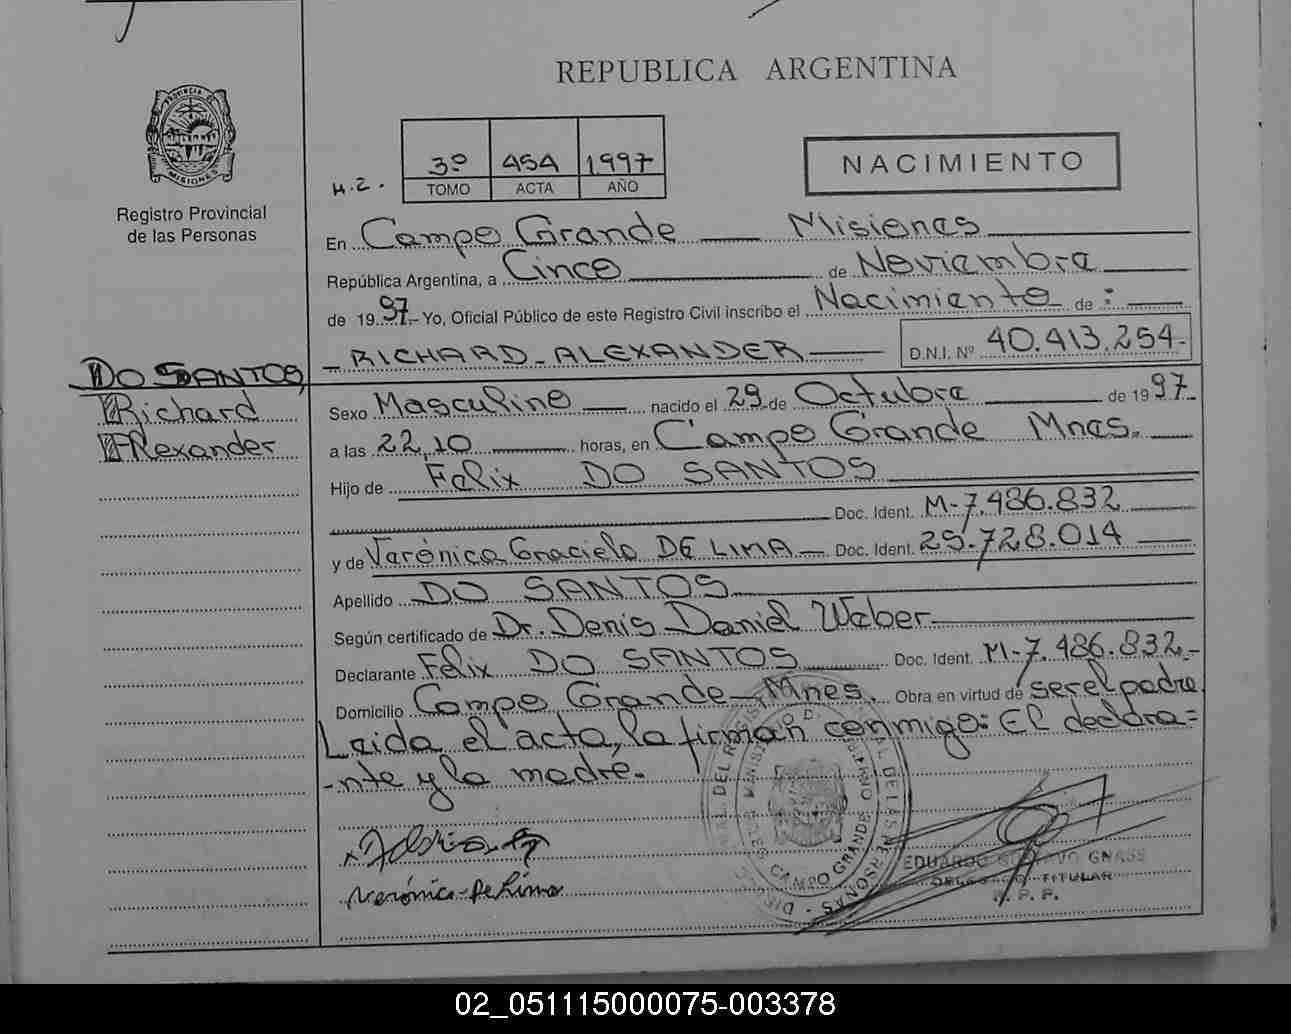 REPUBLICA ARGENTINA
PROVINCIA DE
MISIONES
Registro Provincial
de las Personas
H.Z.
3º 454 1997
TOMO ACTA AÑO
NACIMIENTO
En Campo Grande Misiones
República Argentina, a Cinco de Noviembre
de 1997.- Yo, Oficial Público de este Registro Civil inscribo el Nacimiento de :
- RICHARD - ALEXANDER D.N.I. Nº 40.413.254-
DO SANTOS,
Richard
Alexander
Sexo Masculino nacido el 29 de Octubre de 1997.
a las 22,10 horas, en Campo Grande Mnes.
Hijo de Felix DO SANTOS
Doc. Ident. M-7.486.832
y de Verónica Graciela DE LIMA Doc. Ident. 25.728.014
Apellido DO SANTOS
Según certificado de Dr. Denis Daniel Weber
Declarante Felix DO SANTOS Doc. Ident. M-7.486.832-
Domicilio Campo Grande - Mnes. Obra en virtud de ser el padre
Leida el acta, la firman conmigo: El declara=
-nte y la madre.
Verónica De Lima
CAMPO GRANDE
EDUARDO GUSTAVO GNASS
DELEGADO TITULAR
R. P. P.
02_051115000075-003378